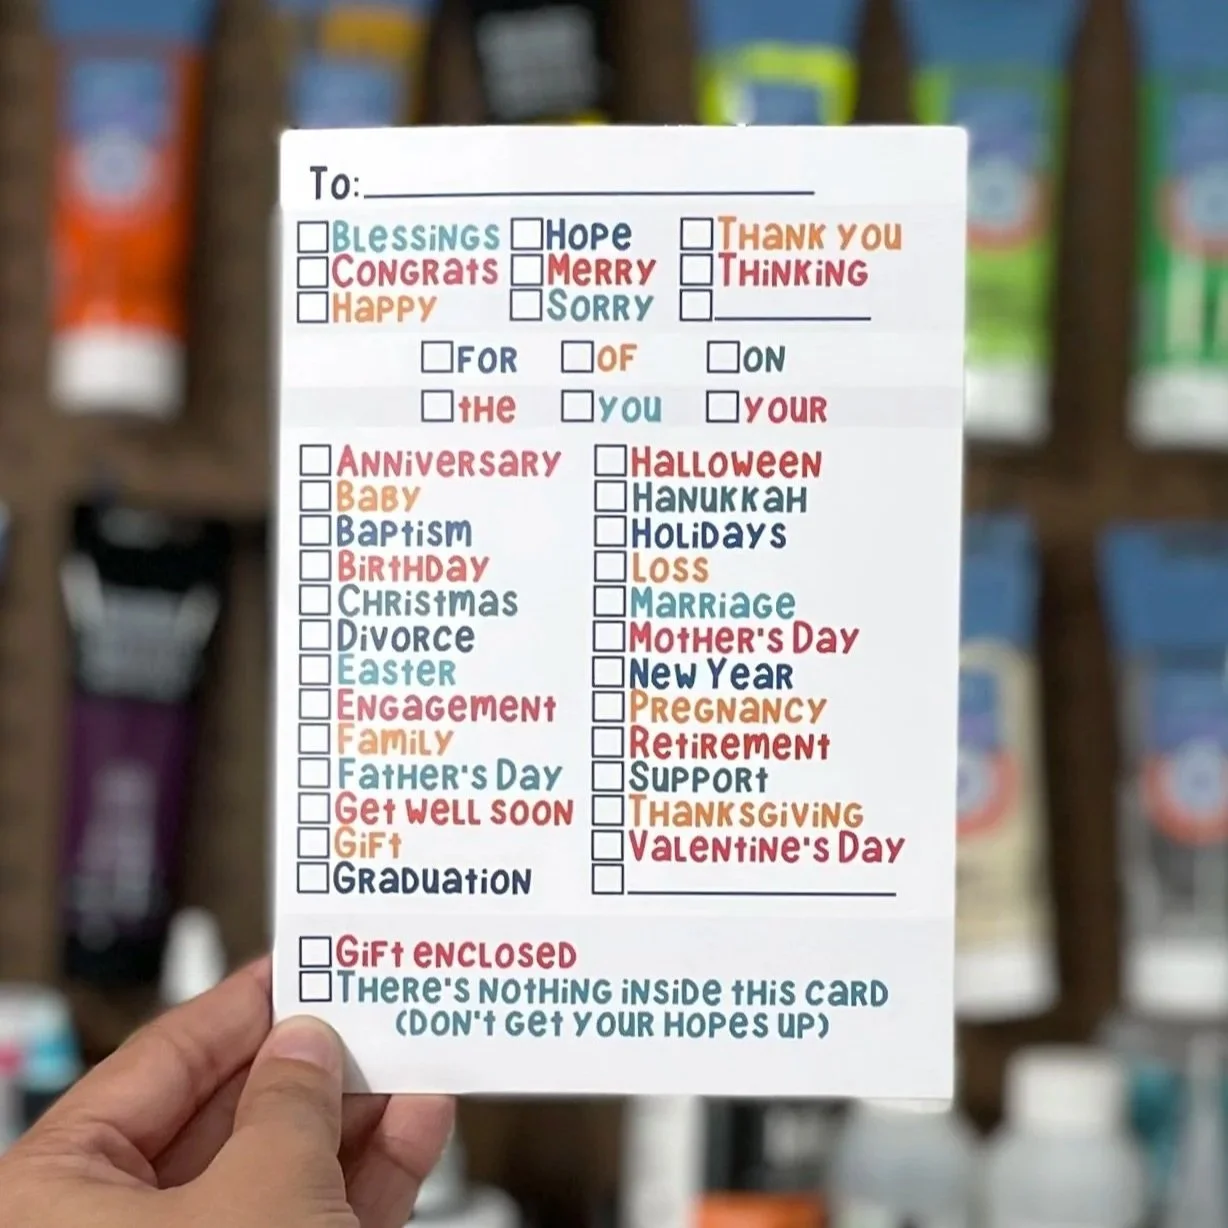 To:
Blessings Hope Thank you
Congrats Merry Thinking
Happy Sorry
for of on
the you your
Anniversary Halloween
Baby Hanukkah
Baptism Holidays
Birthday Loss
Christmas Marriage
Divorce Mother's Day
Easter New Year
Engagement Pregnancy
Family Retirement
Father's Day Support
Get well soon Thanksgiving
Gift Valentine's Day
Graduation
Gift enclosed
There's nothing inside this card
(don't get your hopes up)